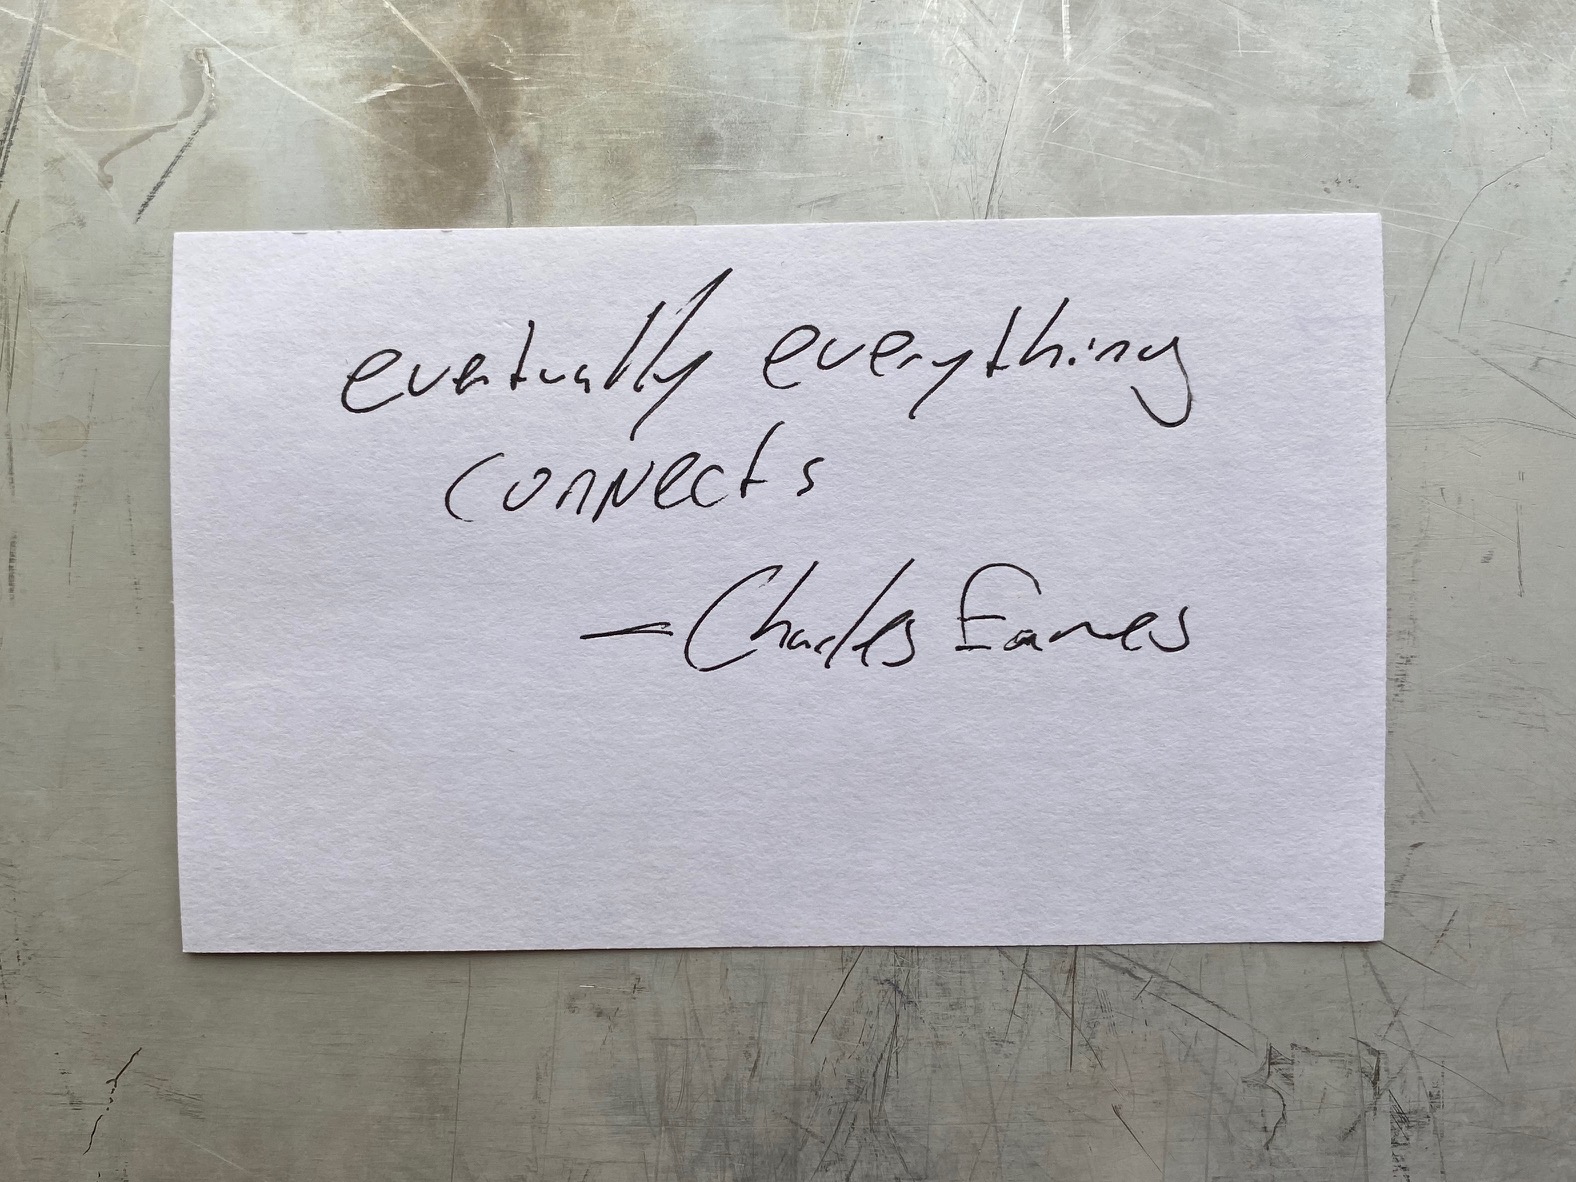 eventually everything
connects
— Charles Eames